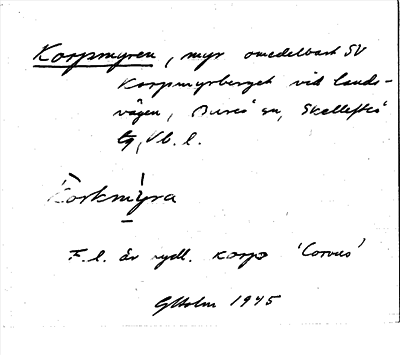 Korpmyren, myr omedelbart SV
Korpmyrberget vid lands-
vägen, Bureå sn, Skellefteå
tg, Vb. l.
Korkmyra
F. l. är rydl. korp 'Corvus'
GHolm 1945